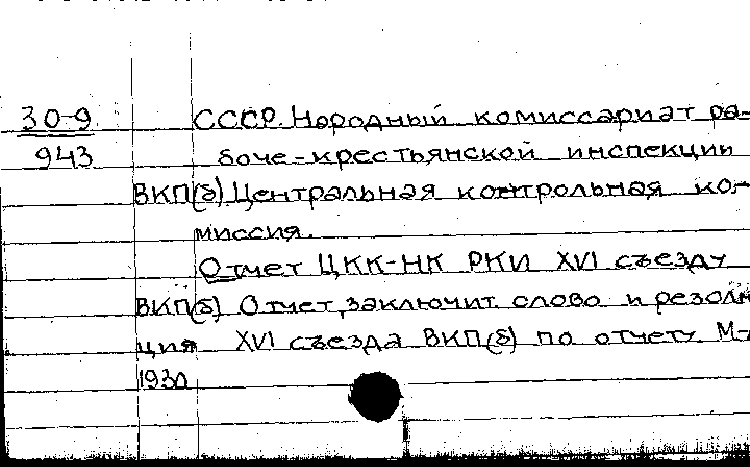 30-9 СССР. Народный комиссариат ра-
943 боче-крестьянской инспекции
ВКП(б) Центральная контрольная ко-
миссия.
Отчет ЦКК-НК РКИ XVI съезду
ВКП(б) Отчет, заключит. слово и резолю
ция XVI съезда ВКП(б) по отчету. М-
1930